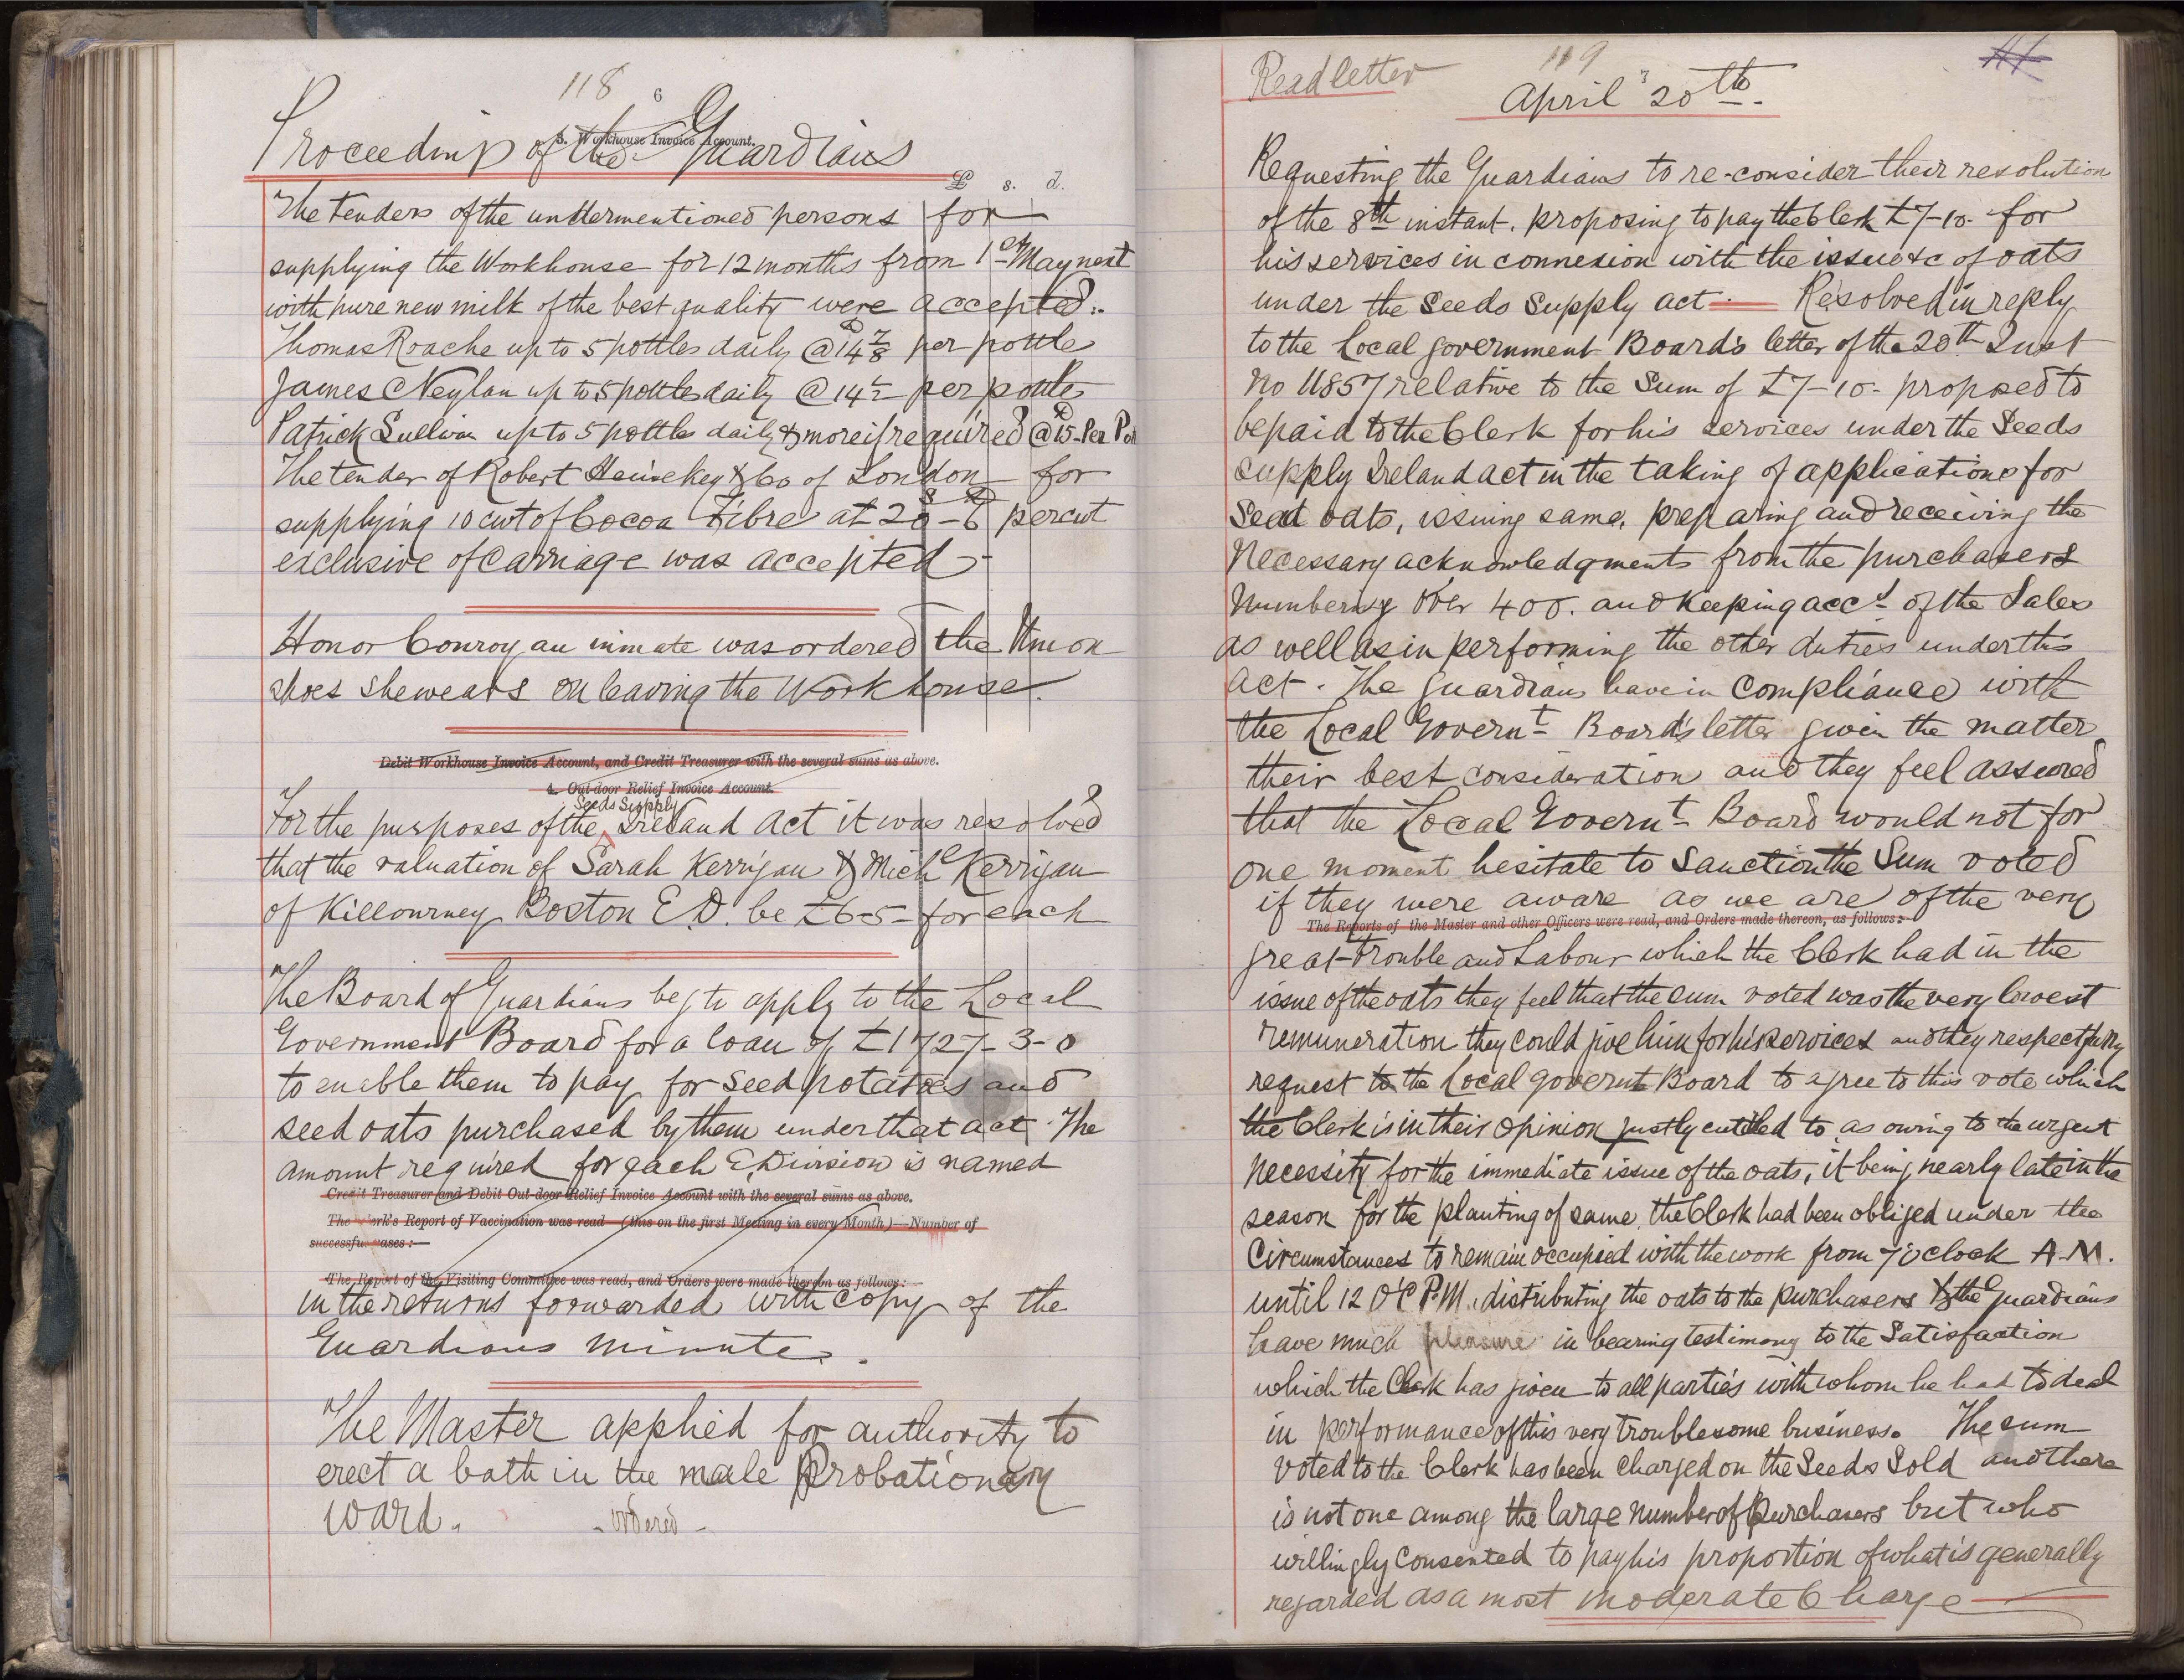 118
6
Proceedings of the Guardians
3. Workhouse Invoice Account.
£ s. d.
The tenders of the undermentioned persons for
supplying the Workhouse for 12 months from 1st May next
with pure new milk of the best quality were accepted:-
Thomas Roache up to 5 pottles daily @ 14 7/8 d per pottle
James Neylan up to 5 pottles daily @ 14½ per pottle
Patrick Sullivan up to 5 pottles daily & more if required @ 15d Per Pot
The tender of Robert & Co of London for
supplying 10 cwt of Cocoa Fibre at 20s-6d per cwt
exclusive of Carriage was accepted -
Honor Conroy an inmate was ordered the Union
shoes she wears on leaving the Workhouse.
Debit Workhouse Invoice Account, and Credit Treasurer with the several sums as above.
4. Out-door Relief Invoice Account.
Seeds Supply
For the purposes of the Ireland Act it was resolved
that the valuation of Sarah Kerrigan & Michl Kerrigan
of Killourney Boston E.D. be £6-5- for each
The Board of Guardians beg to apply to the Local
Government Board for a loan of £1727-3-0
to enable them to pay for seed potatoes and
seed oats purchased by them under that act. The
amount required for each E. Division is named
Credit Treasurer and Debit Out-door Relief Invoice Account with the several sums as above.
The Clerk's Report of Vaccination was read (this on the first Meeting in every Month)—Number of
successful cases:—
The Report of the Visiting Committee was read, and Orders were made thereon as follows:—
in the returns forwarded with copy of the
Guardians minutes.
The Master applied for authority to
erect a bath in the male Probationary
ward. - Ordered -
Read letter
119
April 20th.
Requesting the Guardians to re-consider their resolution
of the 8th instant. proposing to pay the Clerk £7-10- for
his services in connexion with the issue &c of oats
under the Seeds Supply act. Resolved in reply
to the Local Government Board's letter of the 20th Inst
No 11857 relative to the Sum of £7-10- proposed to
be paid to the Clerk for his services under the Seeds
Supply Ireland act in the taking of applications for
Seed oats, issuing same, preparing and receiving the
Necessary acknowledgments from the purchasers
Numbering over 400. and keeping acct of the Sales
as well as in performing the other duties under this
act. The Guardians have in compliance with
the Local Governt Board's letter given the matter
their best consideration and they feel assured
that the Local Governt Board would not for
one moment hesitate to Sanction the Sum voted
if they were aware as we are of the very
The Reports of the Master and other Officers were read, and Orders made thereon, as follows:-
great trouble and Labour which the Clerk had in the
issue of the oats they feel that the sum voted was the very lowest
remuneration they could give him for his services and they respectfully
request to the Local Governt Board to agree to this vote which
the Clerk is in their opinion justly entitled to as owing to the urgent
necessity for the immediate issue of the oats, it being nearly late in the
season for the planting of same, the Clerk had been obliged under the
Circumstances to remain occupied with the work from 7 o'clock A.M.
until 12 O'C P.M. distributing the oats to the purchasers & the Guardians
have much pleasure in bearing testimony to the Satisfaction
which the Clerk has given to all parties with whom he had to deal
in performance of this very troublesome business. The sum
voted to the Clerk has been charged on the Seeds Sold and there
is not one among the large number of Purchasers but who
willingly Consented to pay his proportion of what is generally
regarded as a most moderate Charge